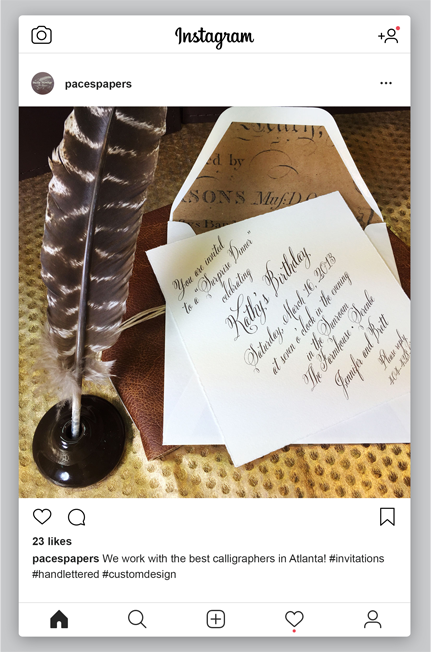 Instagram
pacespapers
ed by
SONS Mus.D.
You are invited
to a "Surprise Dinner"
celebrating
Kathy's Birthday
Saturday, March 10, 2018
at seven o'clock in the evening
in the Sunroom
The Farmhouse
Jennifer and Brett
Please reply
23 likes
pacespapers We work with the best calligraphers in Atlanta! #invitations
#handlettered #customdesign